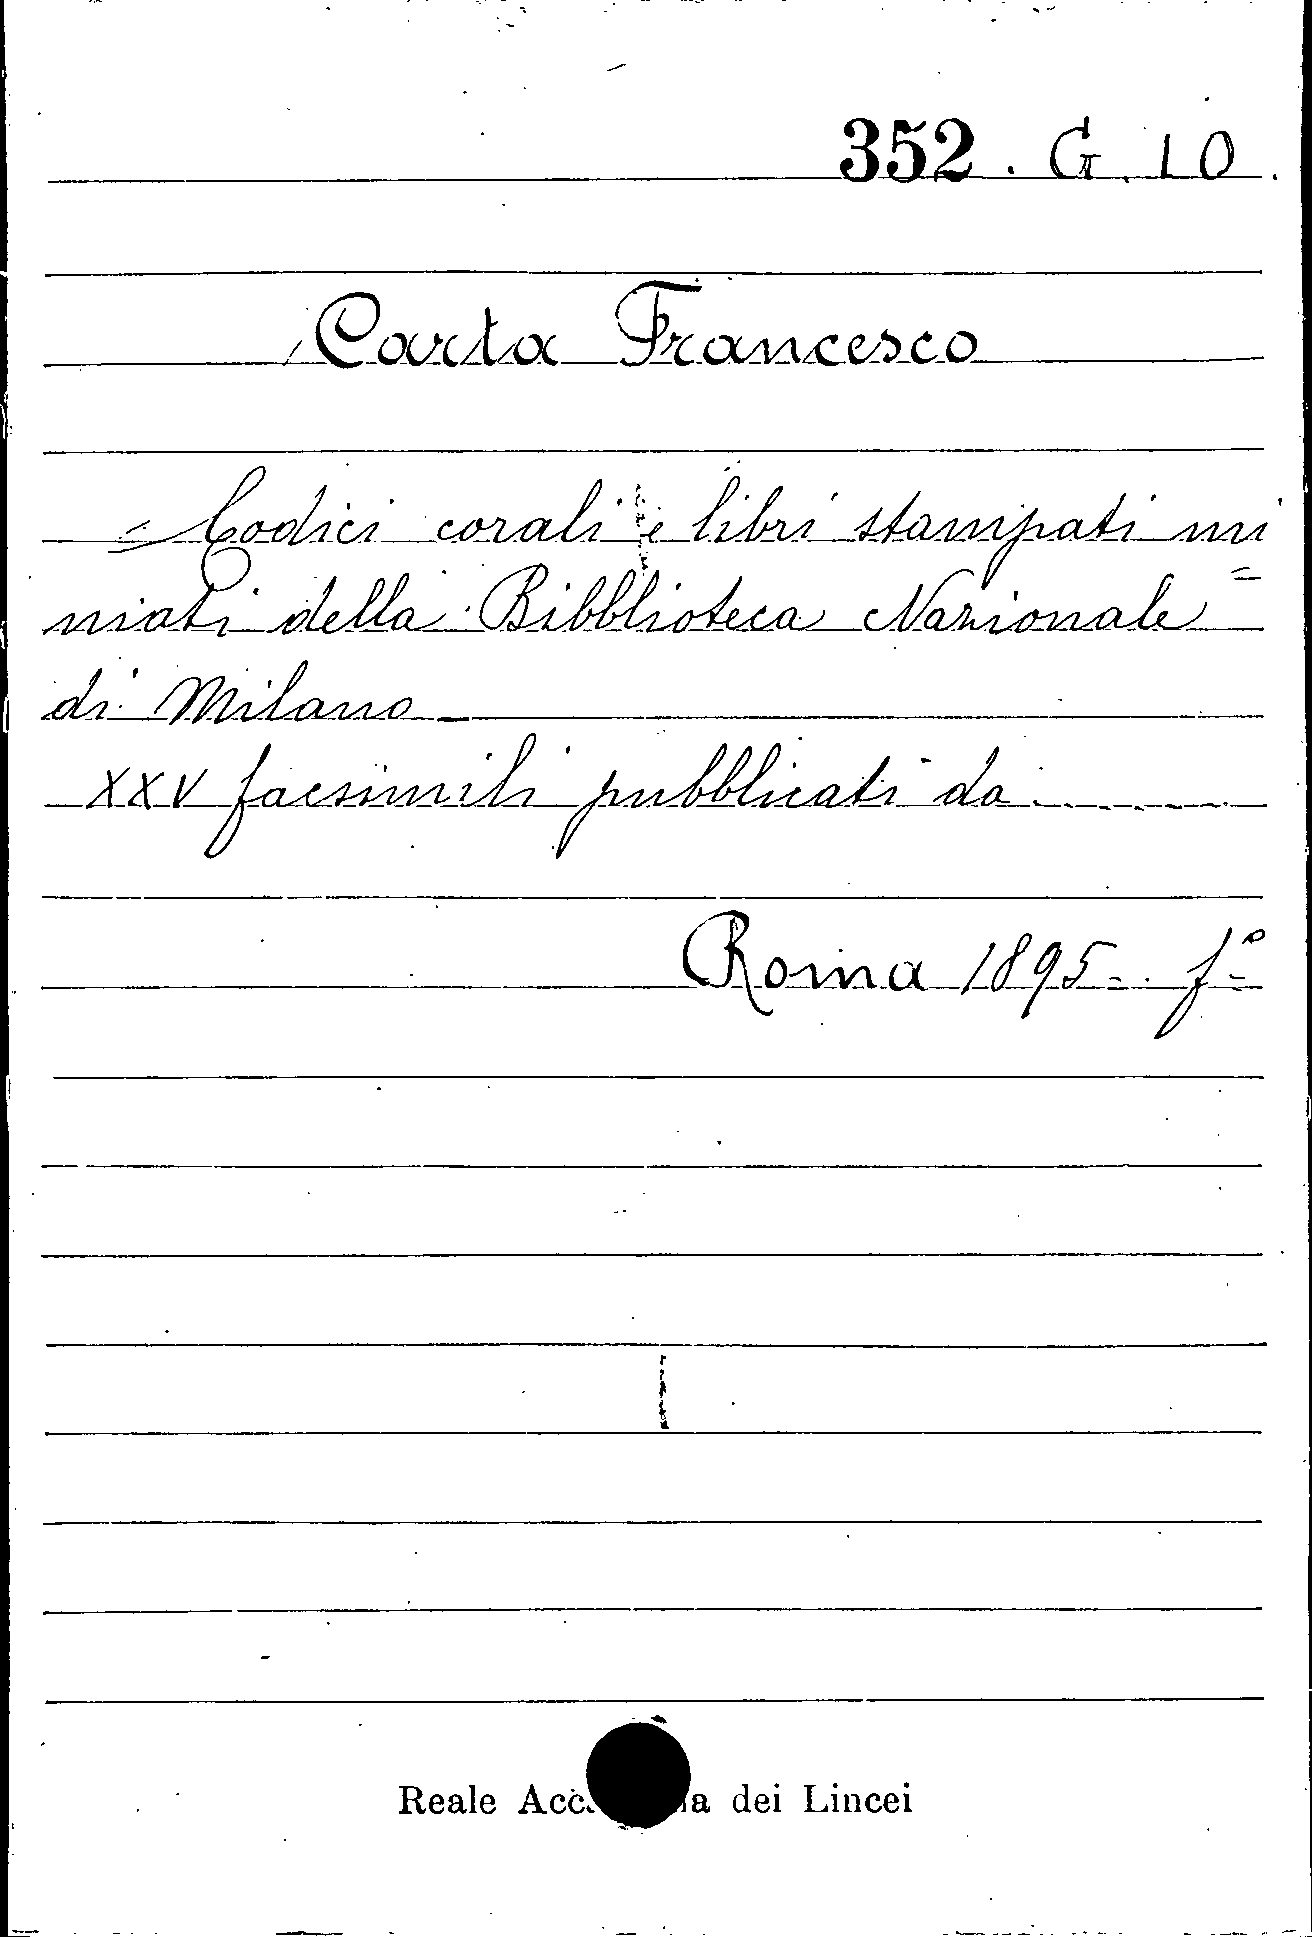 352. G. 10.
Carta Francesco
= Codici corali e libri stampati mi=
niati della Bibblioteca Nazionale
di Milano
XXV facsimili pubblicati da .......
Roma 1895=. fº
Reale dei Lincei